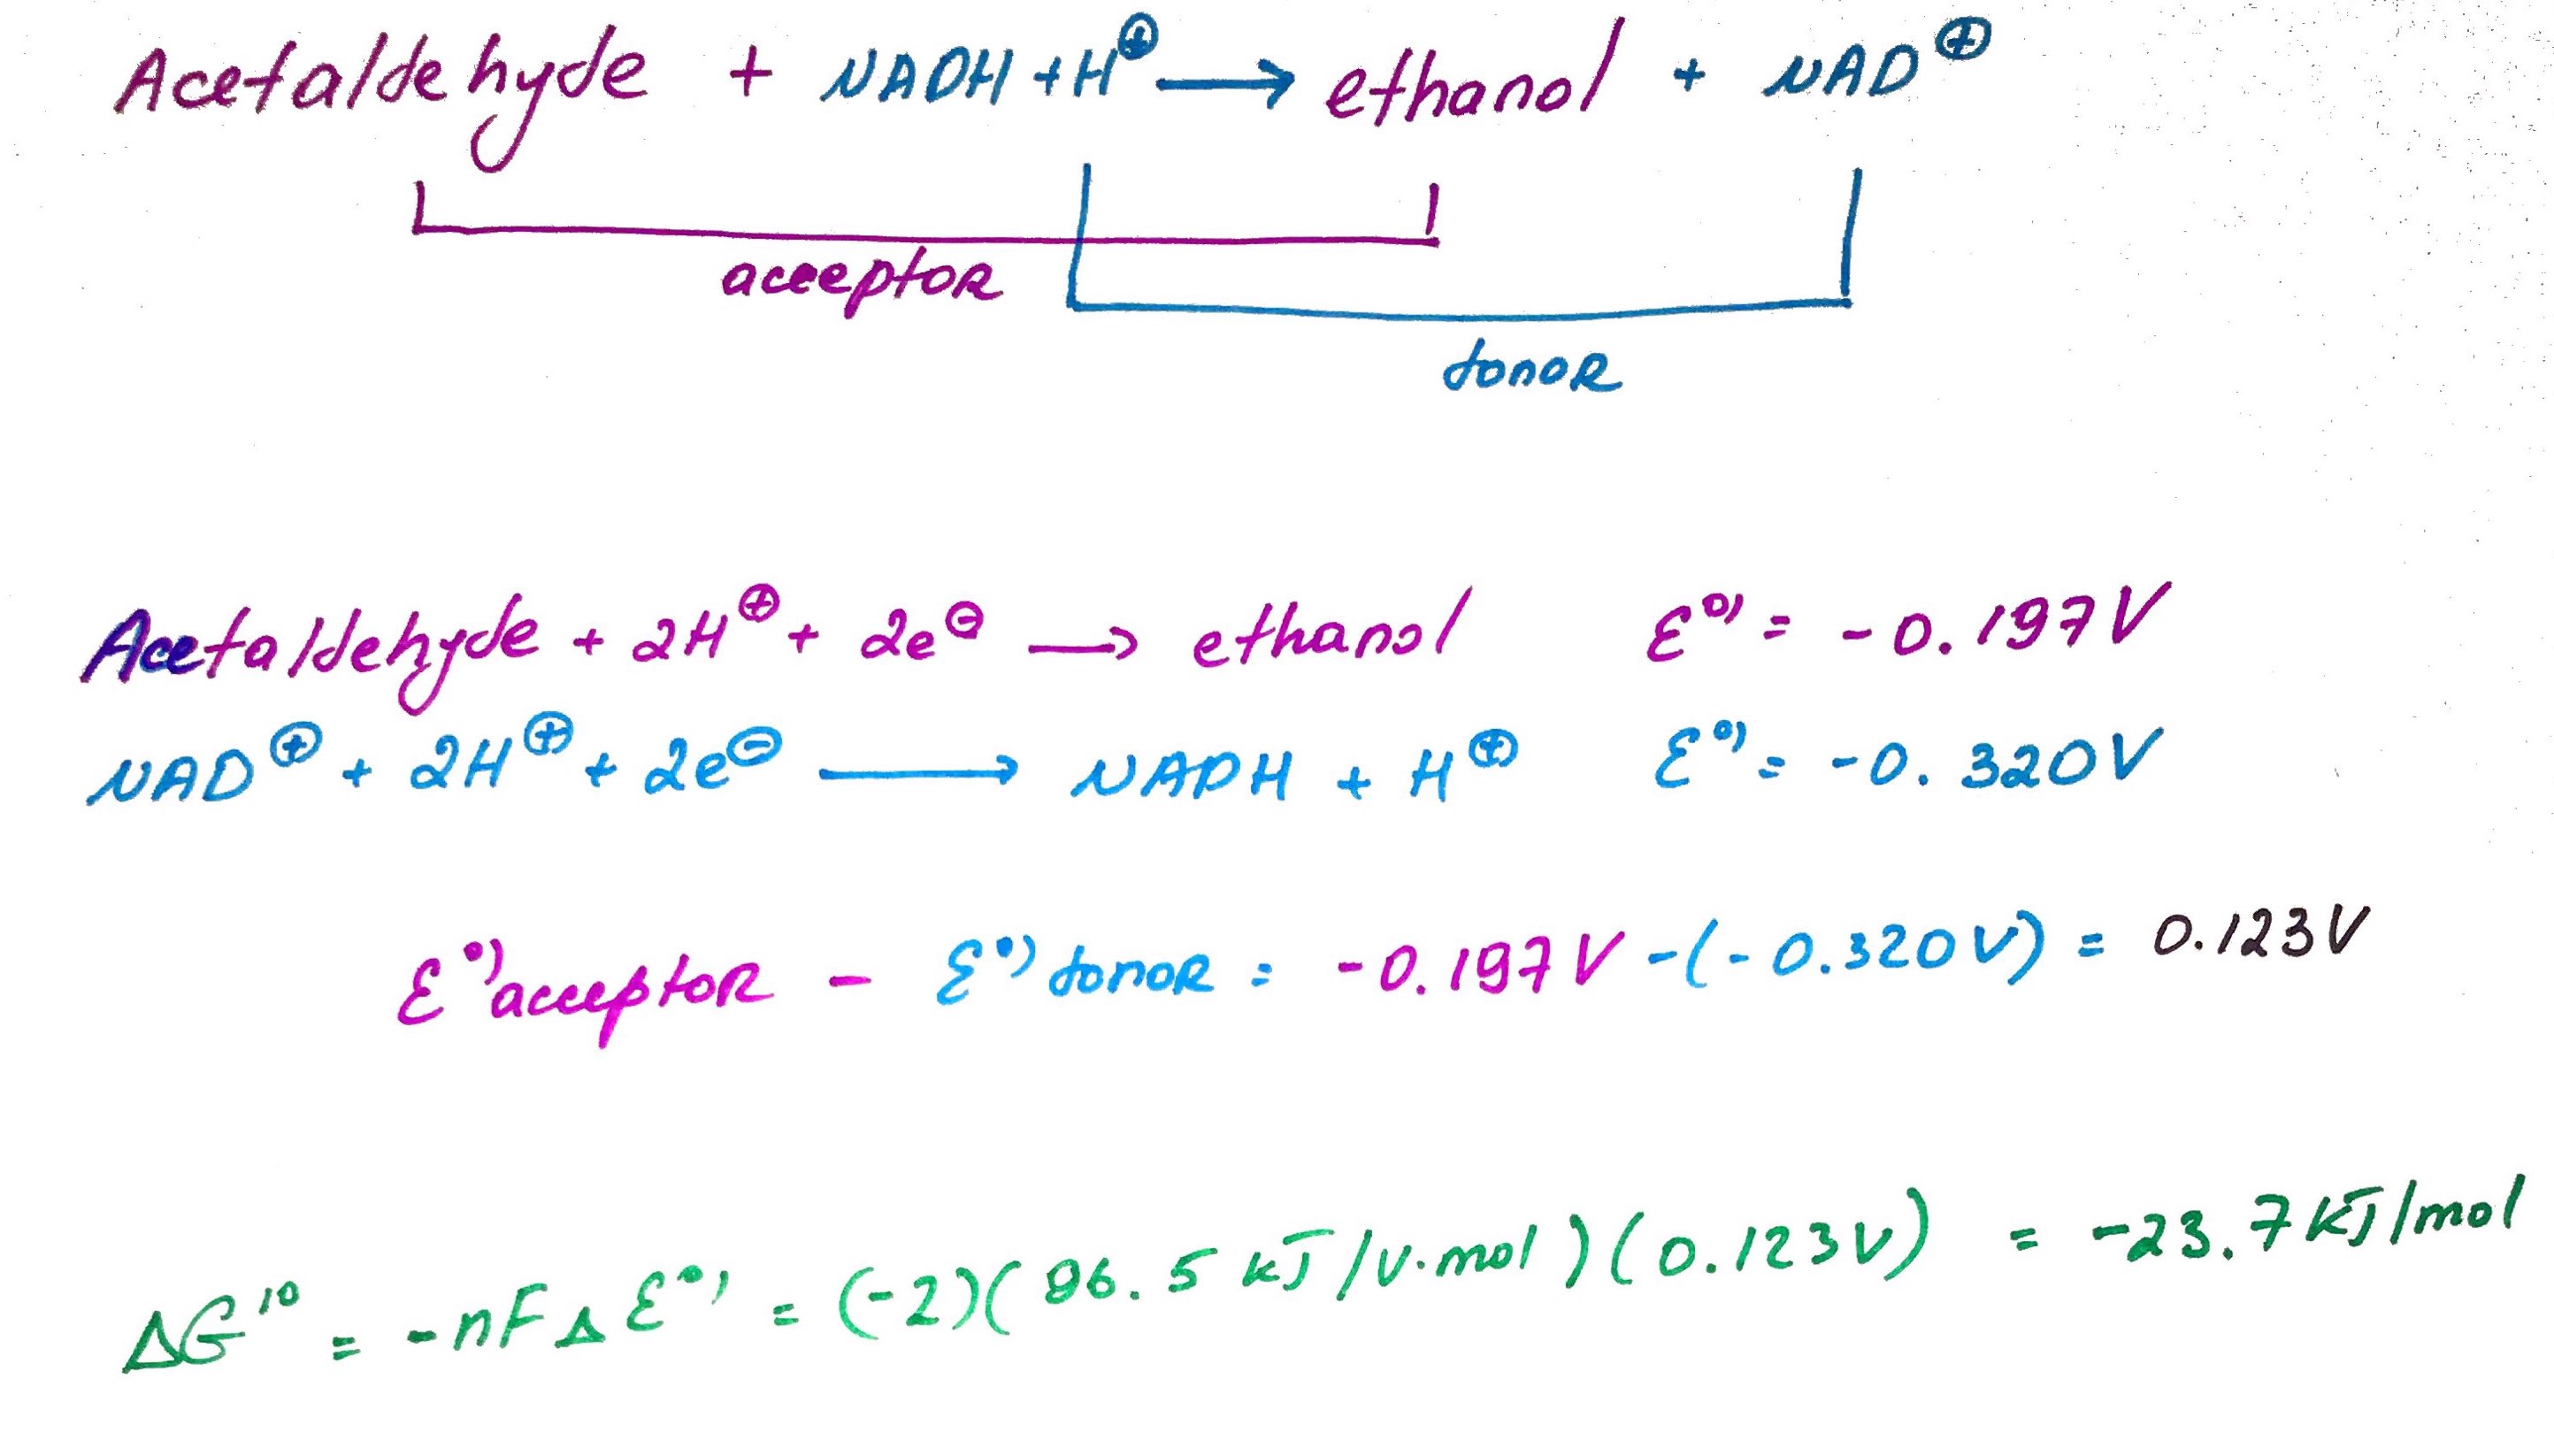 Acetaldehyde + NADH + H⊕ → ethanol + NAD⊕
acceptor
donor
Acetaldehyde + 2H⊕ + 2e⊖ → ethanol ℰ°' = -0.197V
NAD⊕ + 2H⊕ + 2e⊖ → NADH + H⊕ ℰ°' = -0.320V
ℰ°'acceptor - ℰ°'donor = -0.197V - (-0.320V) = 0.123V
ΔG'° = -nFΔℰ°' = (-2)(96.5 kJ/V·mol)(0.123V) = -23.7 kJ/mol